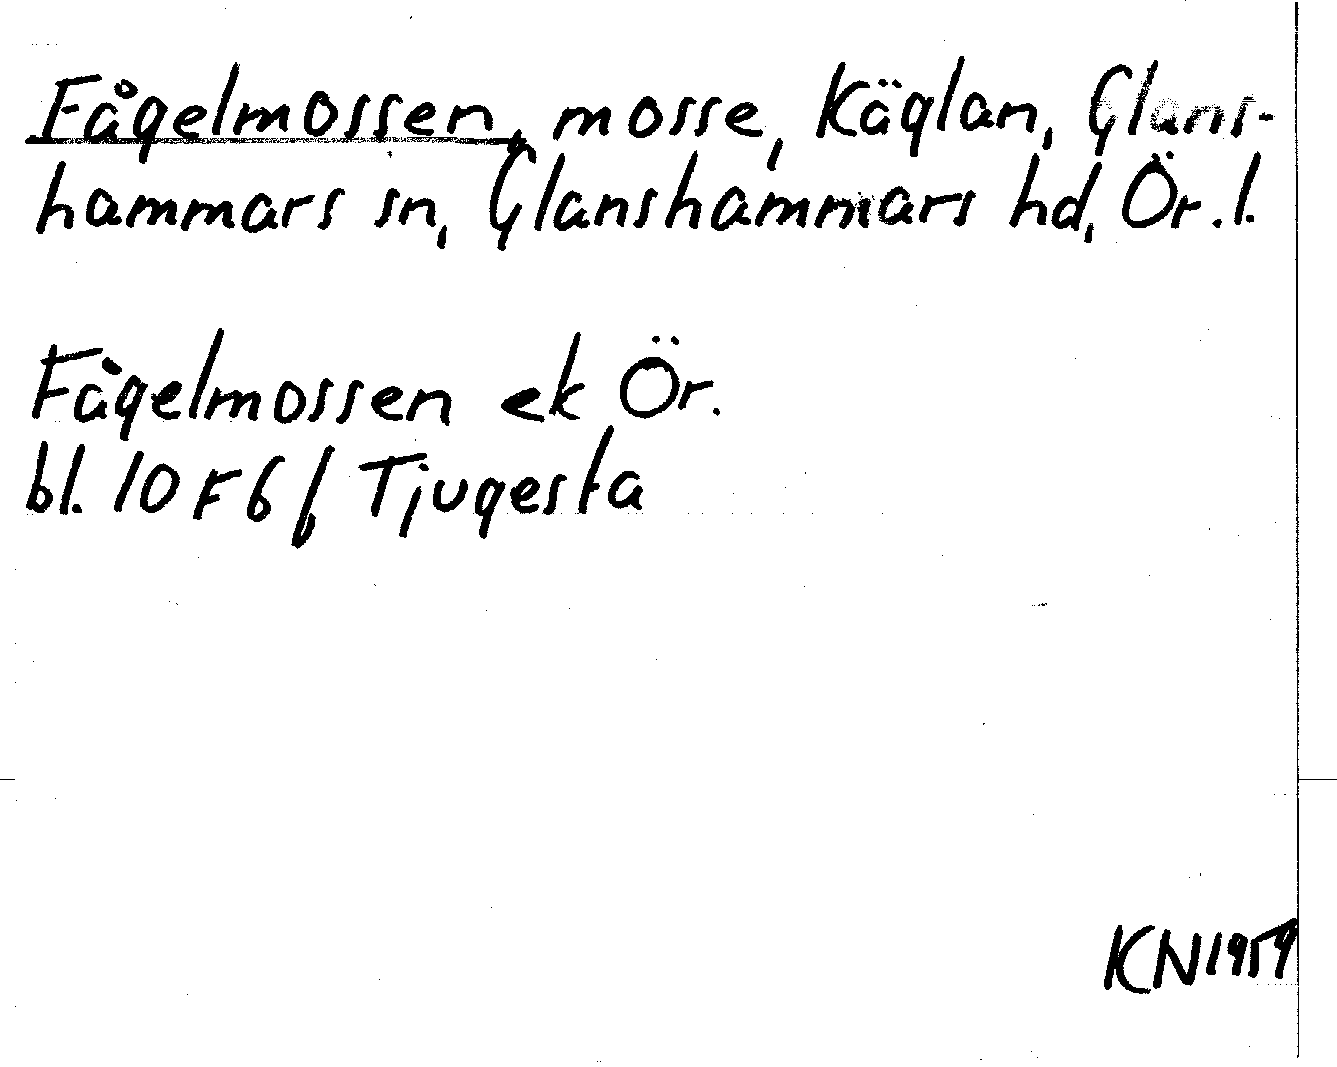 Fågelmossen, mosse, Käglan, Glans-
hammars sn, Glanshammars hd, Ör. l.
Fågelmossen ek Ör.
bl. 10 F 6 f Tjugesta
KN 1959